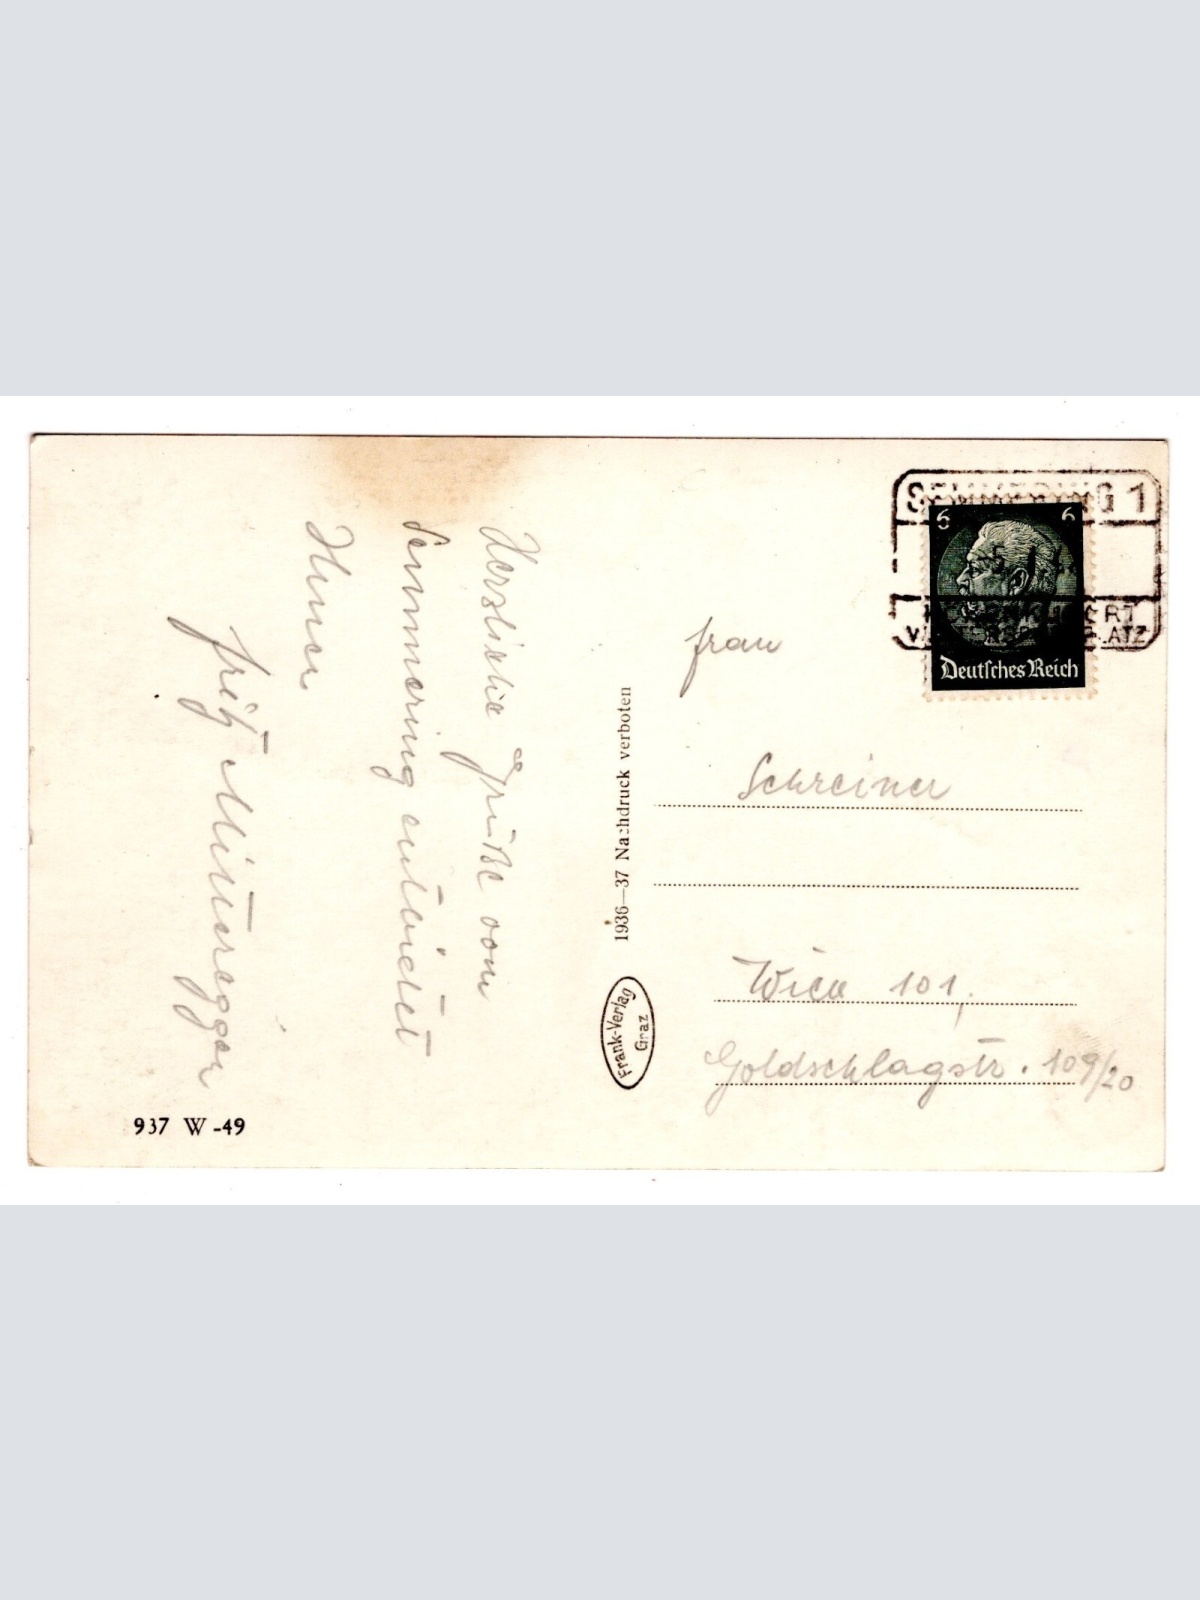 Herzliche Grüße vom
Semmering entbietet
Ihnen
Fritz Mitteregger
937 W-49
1936—37 Nachdruck verboten
Frank-Verlag
Graz
SEMMERING 1
6 6
Deutsches Reich
Frau
Schreiner
Wien 101,
Goldschlagstr. 109/20